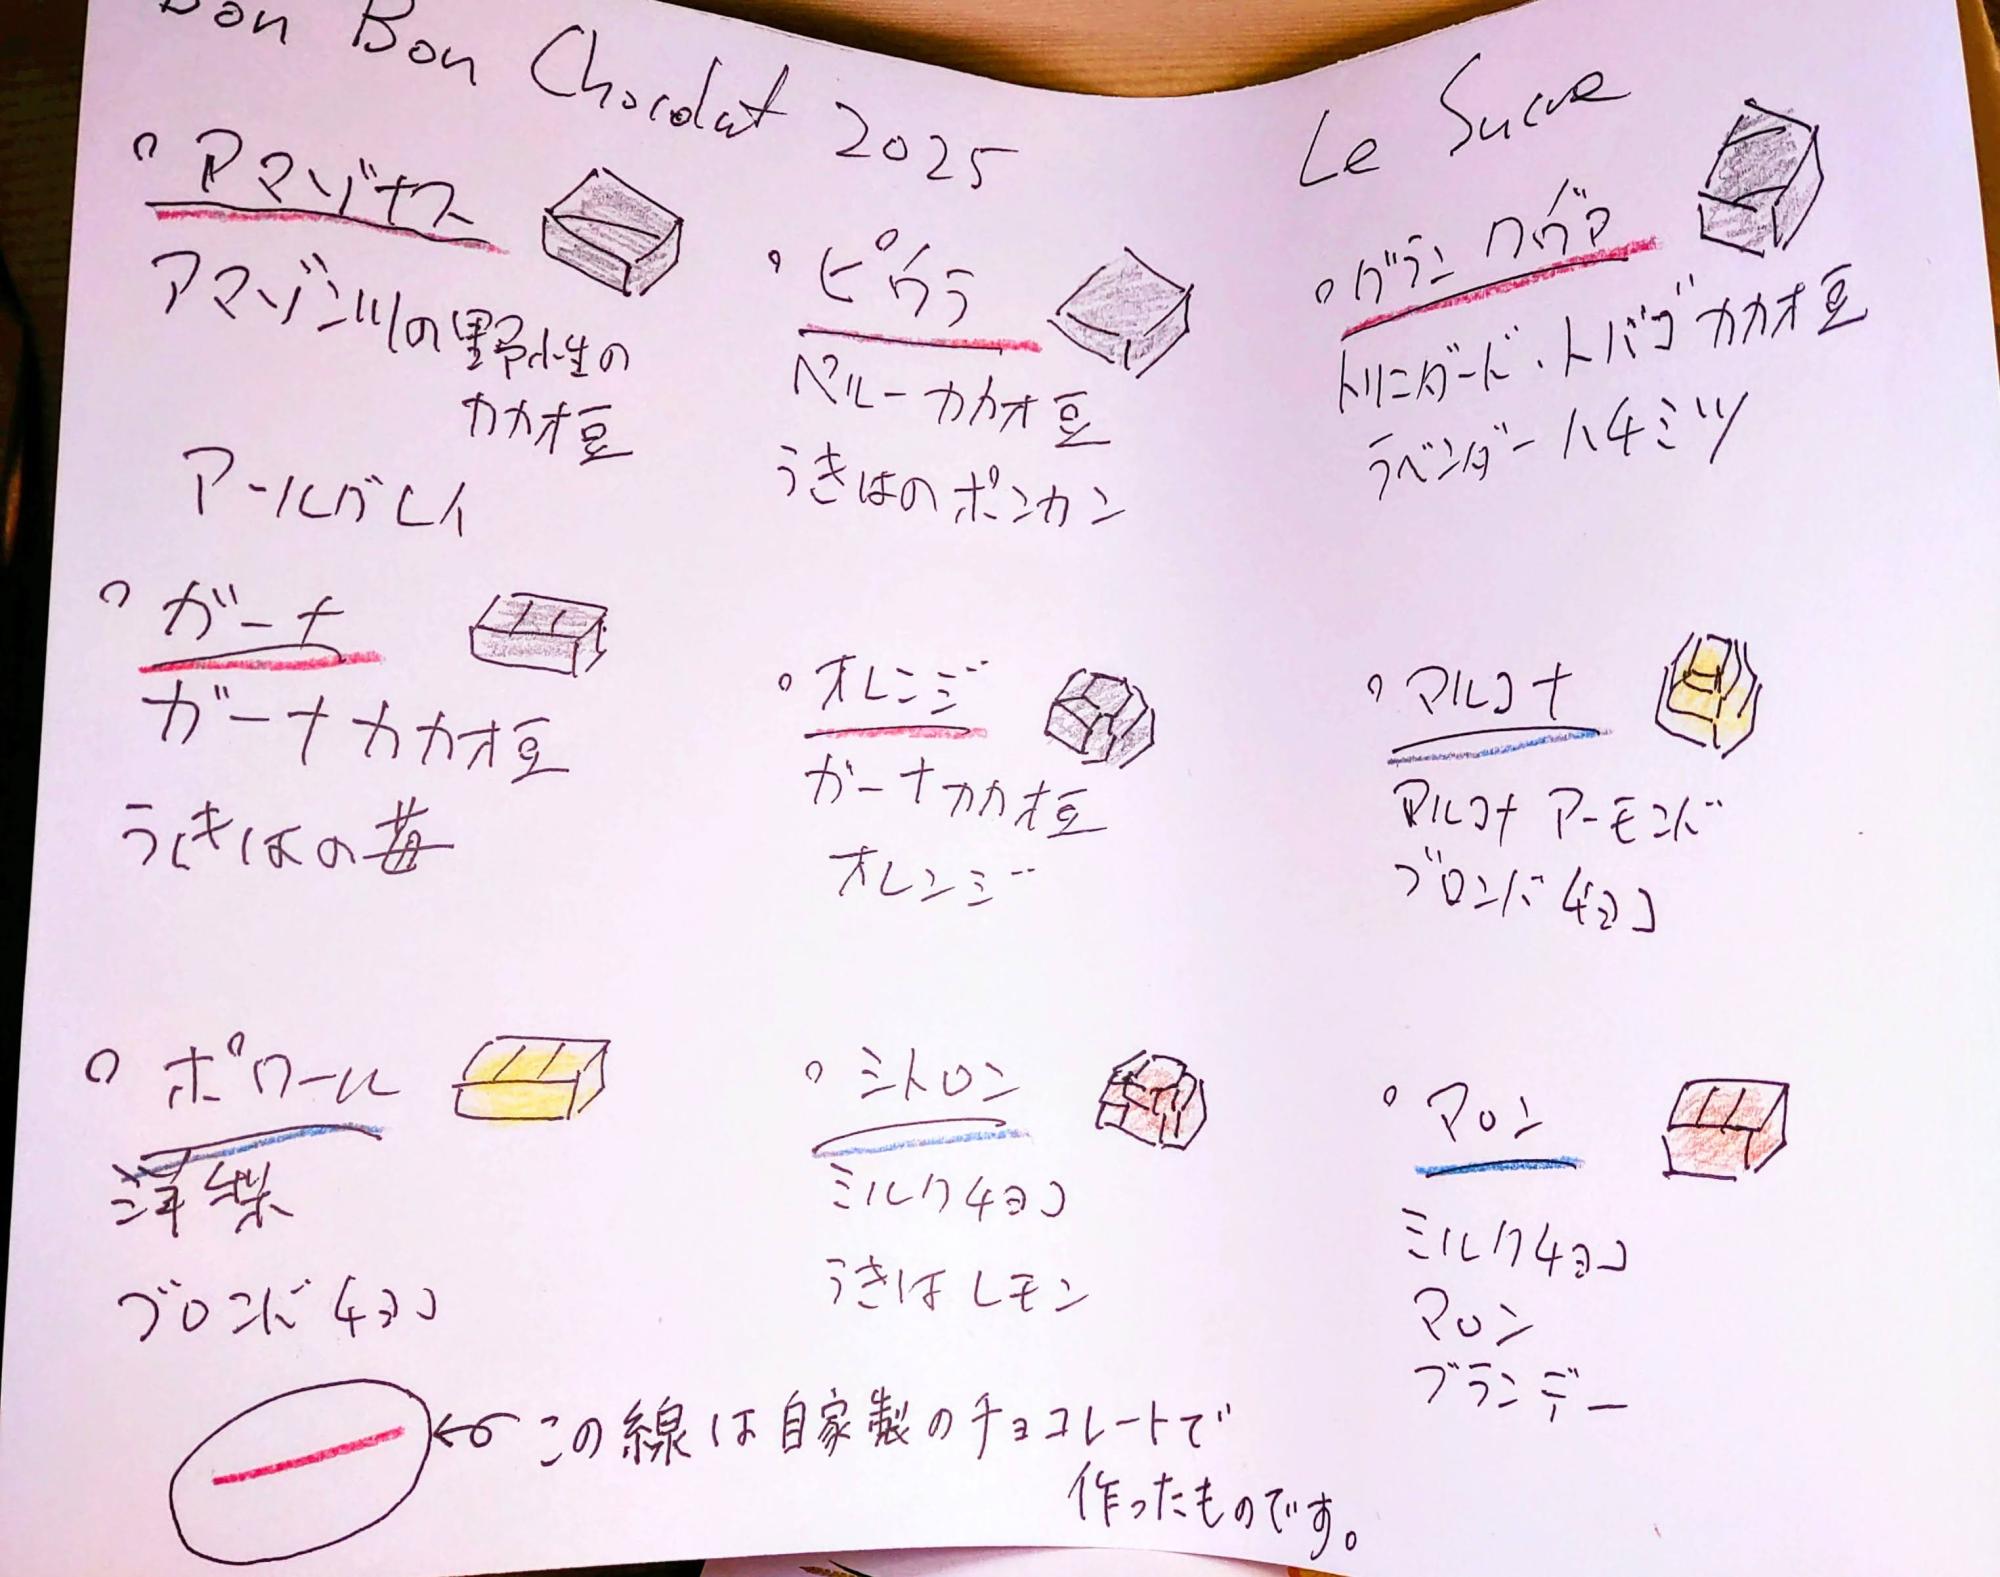 Bon Bon Chocolat 2025
Le Sucre
アマゾナス
アマゾン川の野性の
カカオ豆
アールグレイ
ピウラ
ペルーカカオ豆
うきはのポンカン
グラン クヴァ
トリニダード・トバゴカカオ豆
ラベンダーハチミツ
ガーナ
ガーナカカオ豆
うきはの苺
オレンジ
ガーナカカオ豆
オレンジ
マルコナ
マルコナ アーモンド
ブロンドチョコ
ポワール
洋梨
ブロンドチョコ
シトロン
ミルクチョコ
うきはレモン
マロン
ミルクチョコ
マロン
ブランデー
この線は自家製のチョコレートで
作ったものです。